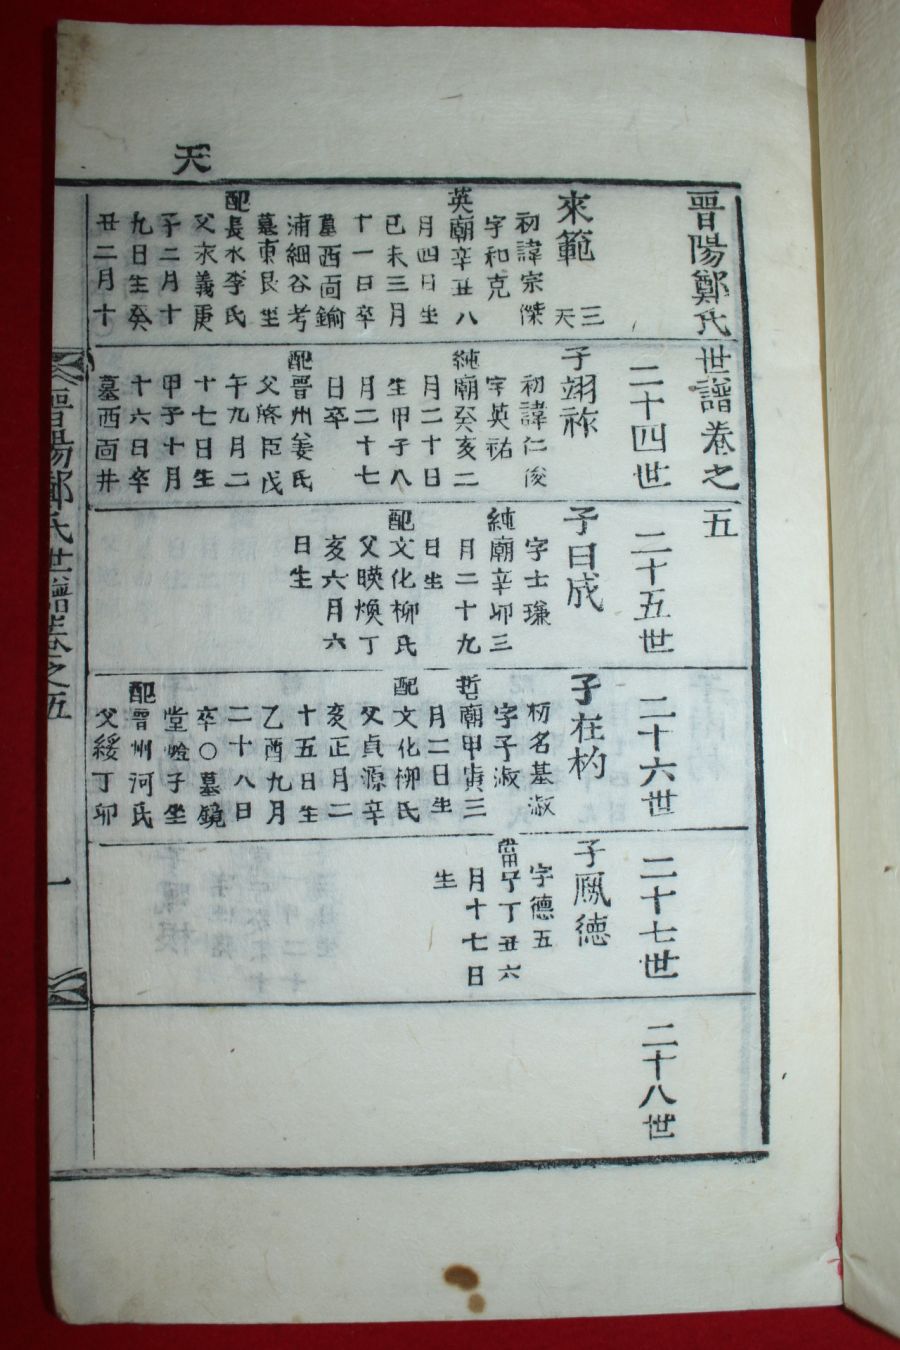 天
晋陽鄭氏世譜卷之五
來範
三
天
初諱宗傑
字和克
英廟辛丑八
月四日生
已未三月
十一日卒
墓西面鍮
浦細谷考
墓東艮坐
配長水李氏
父求義庚
子二月十
九日生癸
丑二月十
二十四世
子翊祚
初諱仁俊
字英祐
純廟癸亥二
月二十日
生甲子八
月二十七
日卒
配晋州姜氏
父啓臣戊
午九月二
十七日生
甲子十月
十六日卒
墓西面井
二十五世
子日成
字士璉
純廟辛卯三
月二十九
日生
配文化柳氏
父暎煥丁
亥六月六
日生
二十六世
子在杓
初名基淑
字子淑
哲廟甲寅三
月二日生
配文化柳氏
父貞源辛
亥正月二
十五日生
乙酉九月
二十八日
卒○墓鏡
堂嶝子坐
配晋州河氏
父綏丁卯
二十七世
子鳳德
字德五
當宁丁丑六
月十七日
生
二十八世
晋陽鄭氏世譜卷之五
一